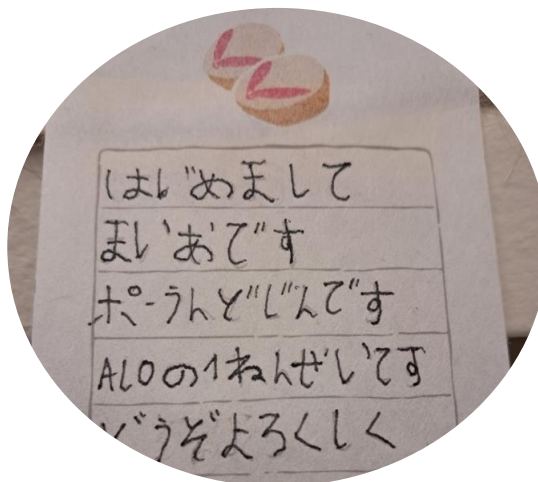 はじめまして
まいあです
ポーうんどじんです
ALOの1ねんせいです
どうぞよろしく